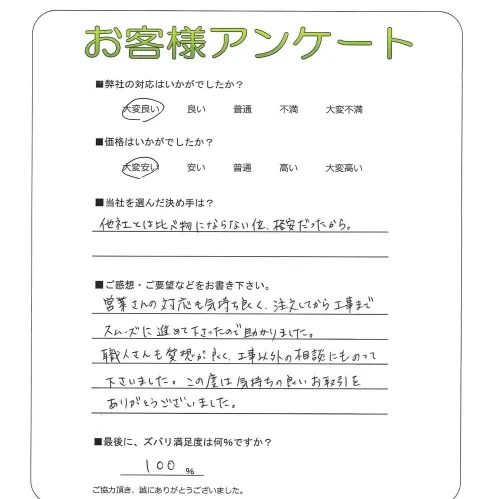 お客様アンケート
■弊社の対応はいかがでしたか？
大変良い 良い 普通 不満 大変不満
■価格はいかがでしたか？
大変安い 安い 普通 高い 大変高い
■当社を選んだ決め手は？
他社とは比べ物にならない位、格安だったから。
■ご感想・ご要望などをお書き下さい。
営業さんの対応も気持ち良く、注文してから工事まで
スムーズに進めて下さったので助かりました。
職人さんも愛想が良く、工事以外の相談にものって
下さいました。この度は気持ちの良いお取引を
ありがとうございました。
■最後に、ズバリ満足度は何％ですか？
100 %
ご協力頂き、誠にありがとうございました。